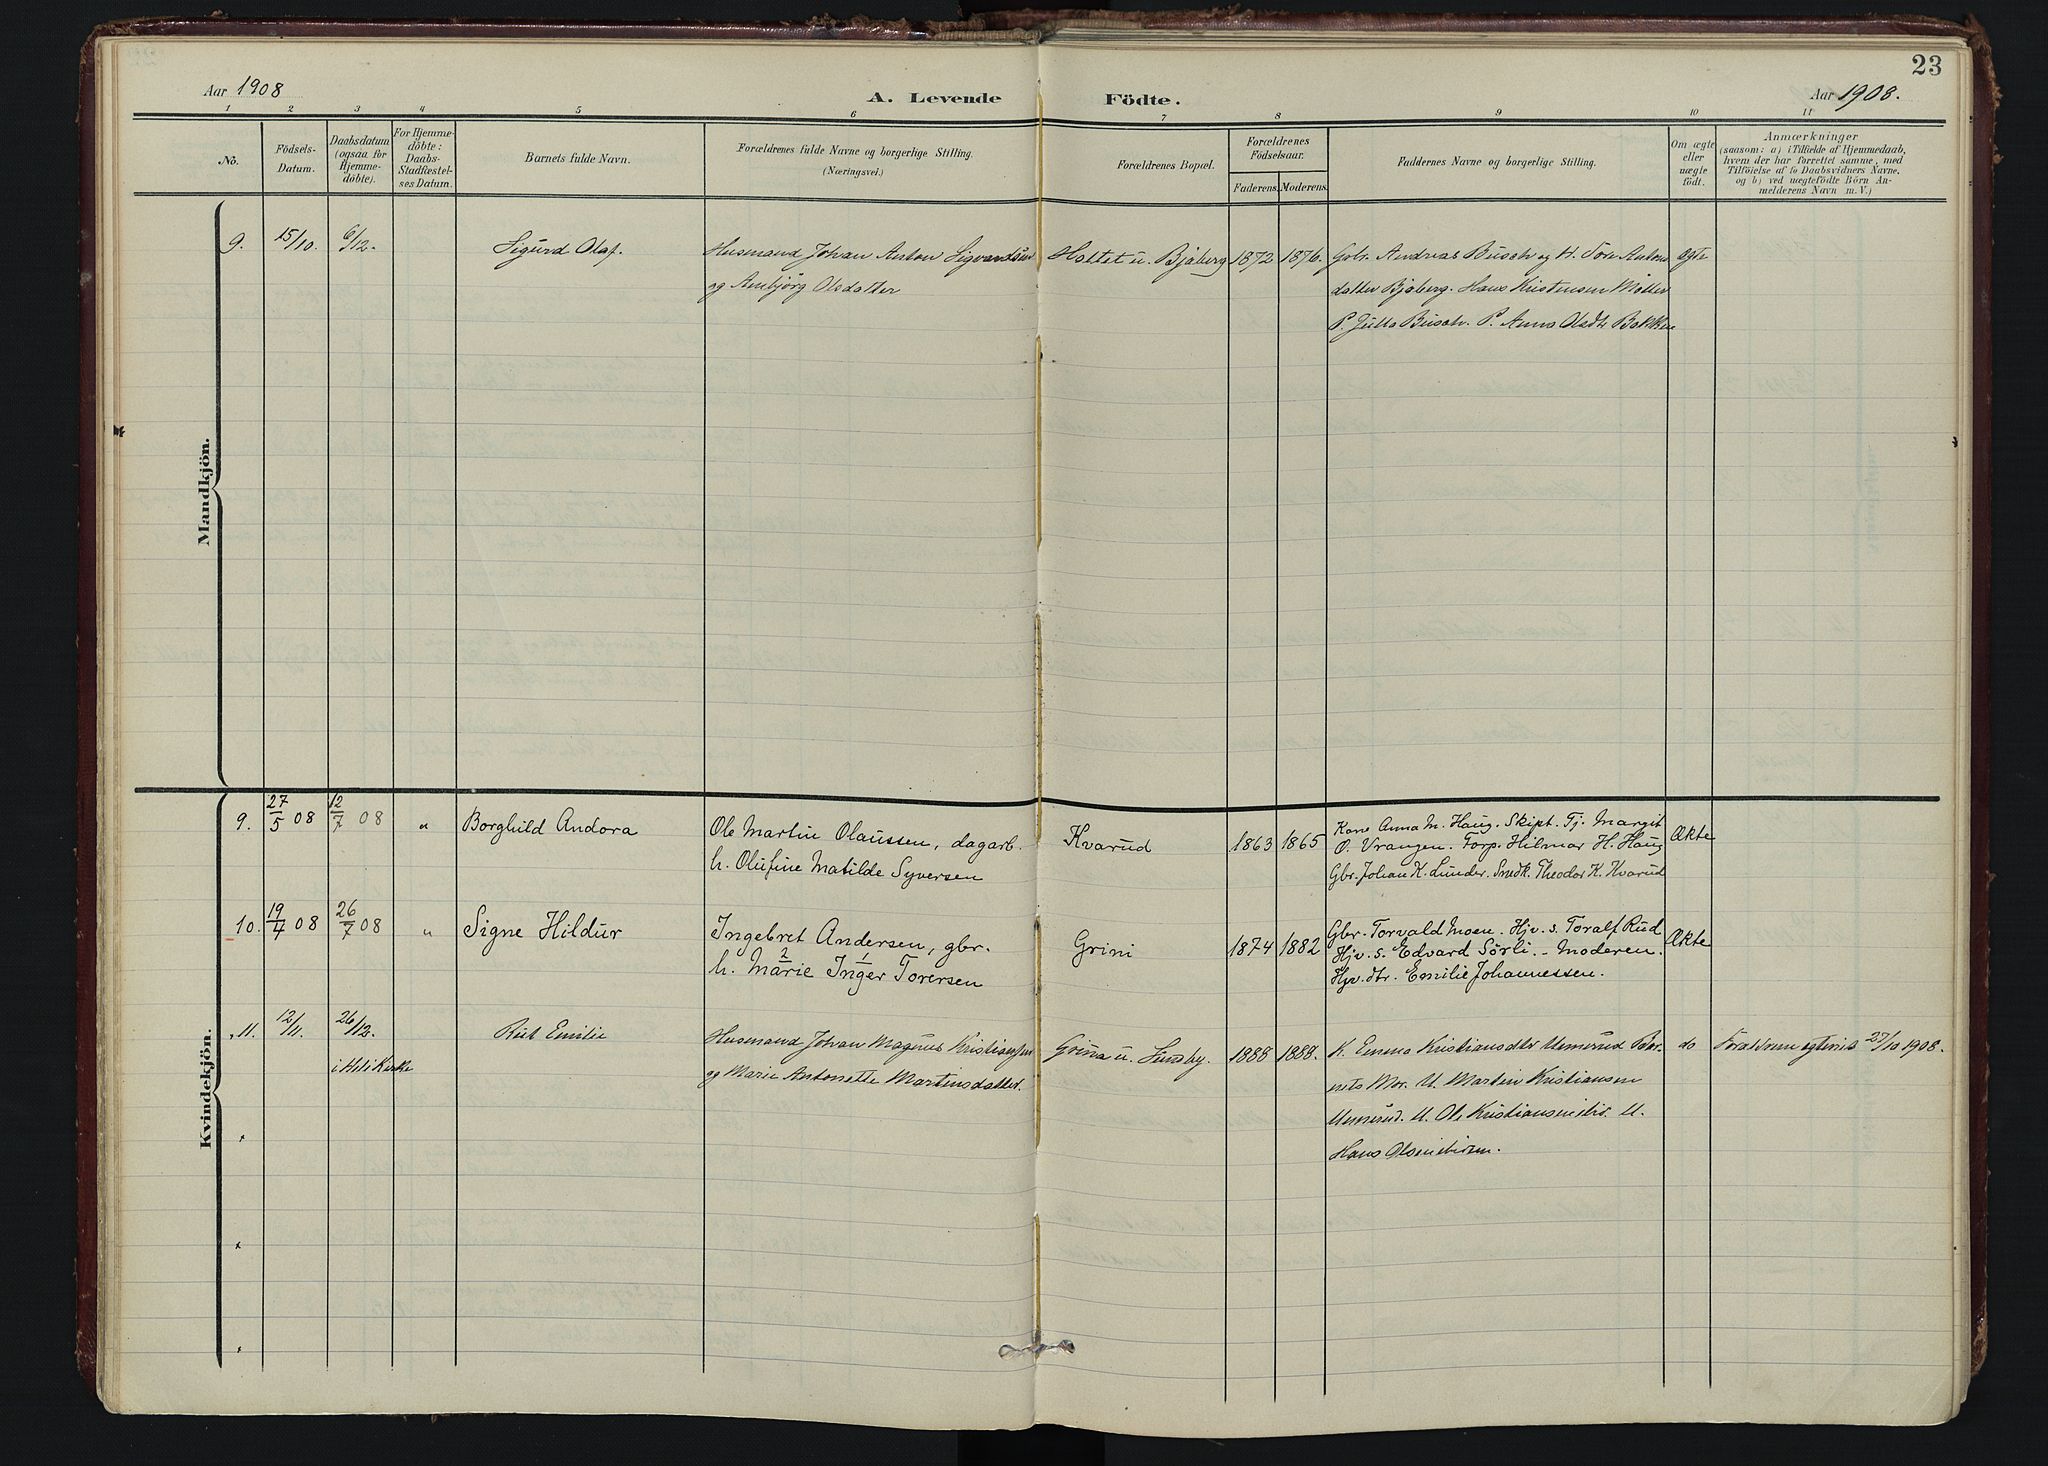 23
Aar 1908
A. Levende Födte.
Aar 1908.
1 2 3 4 5 6 7 8 9 10 11
No.
Födsels-
Datum.
Daabsdatum
(ogsaa for
Hjemme-
döbte).
For Hjemme-
döbte:
Daabs-
Stadfæstel-
ses Datum.
Barnets fulde Navn.
Forældrenes fulde Navne og borgerlige Stilling.
(Næringsvei.)
Forældrenes Bopæl.
Forældrenes
Födselsaar.
Faderens. Moderens.
Faddernes Navne og borgerlige Stilling.
Om ægte
eller
uægte
födt.
Anmærkninger
(saasom: a) i Tilfælde af Hjemmedaab,
hvem der har forrettet samme, med
Tilföielse af to Daabsvidners Navne,
og b) ved uægtefödte Börn An-
melderens Navn m. V.)
Mandkjön.
9. 15/10. 6/12. Sigurd Olaf. Husmand Johan Anton Sigvardsen
og Anbjörg Olsdatter
Holtet u. Bjöberg 1872 1876. Gbr. Andreas Busch og H. Tore Antons
datter Bjöberg. Hans Kristensen
P. Jutta Busch. P. Anna Olsdtr Bakken
ægte
Kvindekjön.
9. 27/5 08 12/7 08 " Borghild Andora Ole Martin Olaussen, dagarb.
h. Olufine Matilde Syversen
Kvarud 1863 1865 Kone Anna M. Haug. Skipt. Tj. Margit
O. Vrangen. Torp. Hilmar H. Haug
Gbr. Johan K. Lunder. Snedk. Theodor K. Kvarud
Ækte
10. 19/4 08 26/7 08 " Signe Hildur Ingebret Andersen, gbr.
2 1
h. Marie Inger Torersen
Grini 1874 1882 Gbr. Torvald Moen. Hjv. s. Toralf Rud
Hjv. s. Edvard Sörli. - Moderen.
Hjv. dtr. Emilie Johannessen.
Ækte
11. 12/11. 26/12. Rut Emilie Husmand Johan Magnus Kristiansen
i Kirke
og Marie Antonette Martinsdatter.
u. Sundby. 1888 1888. K. Emma Kristiansdtr Unnerud Bar-
nets Mor. U. Martin Kristiansen
Unnerud. U. Ole Kristiansen ibid. U.
Hans Olsen
do
Forældrene egteviet 27/10 1908.